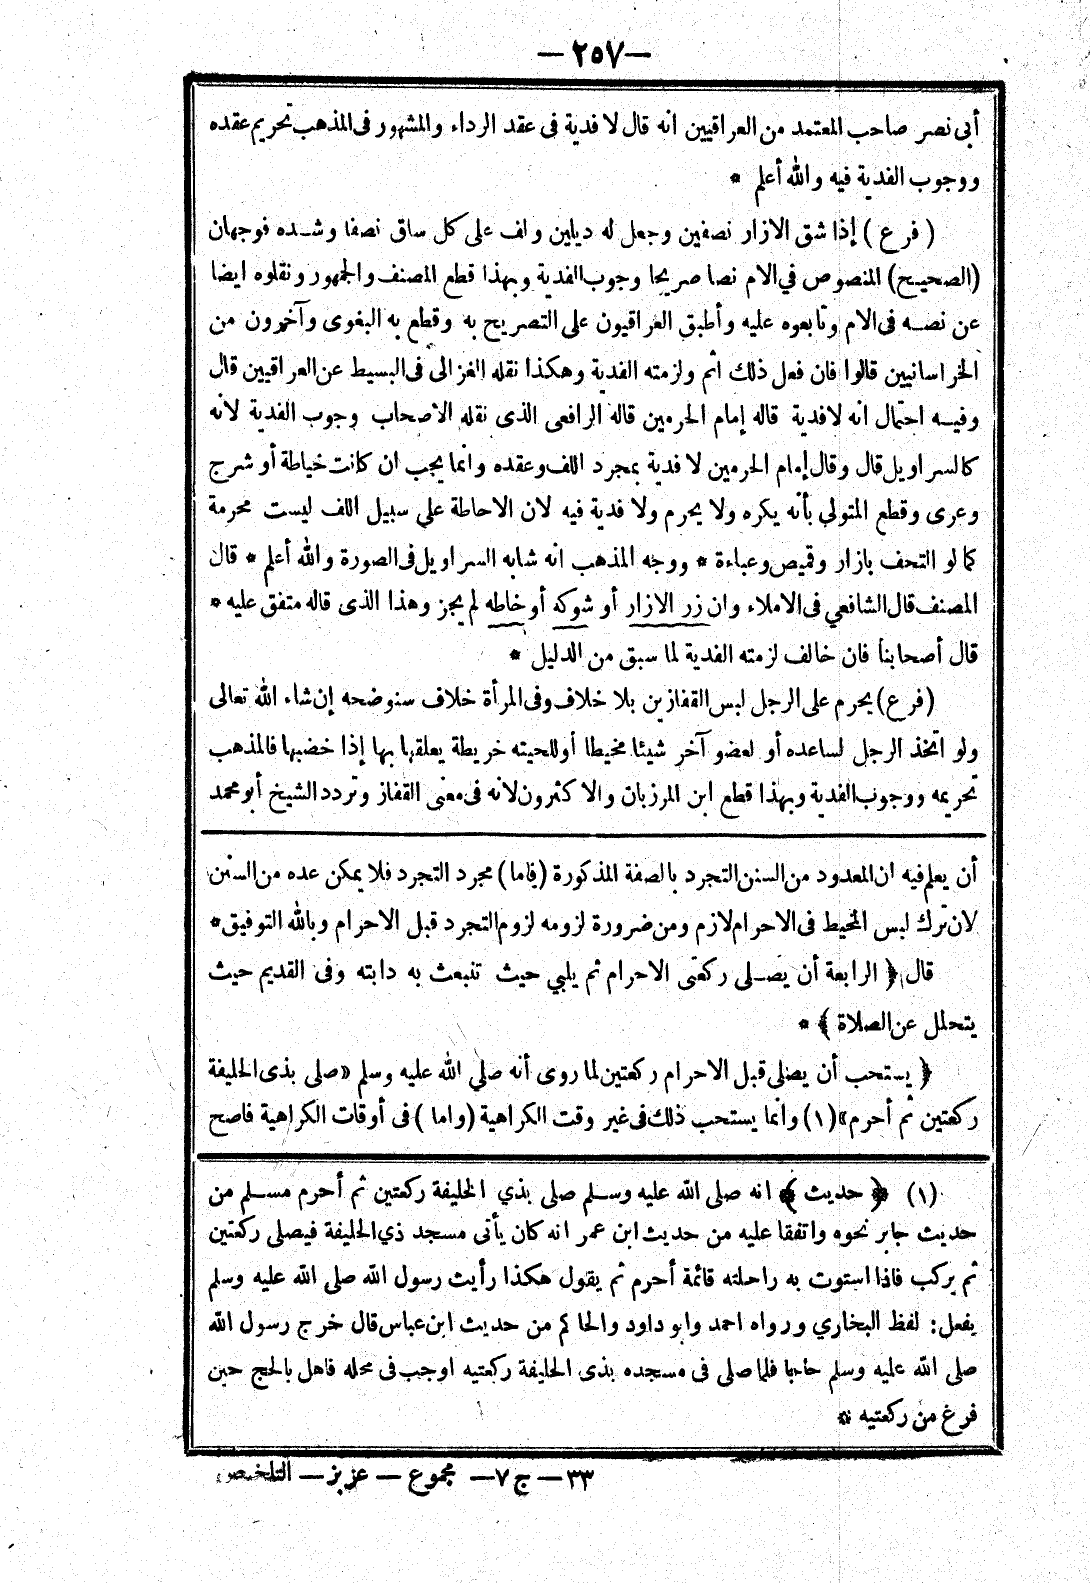 — ٢٥٧ —
أبى نصر صاحب المعتمد من العراقيين انه قال لا فدية فى عقد الرداء والمشهور فى المذهب تحريم عقده
ووجوب الفدية فيه والله أعلم *
( فرع ) إذا شق الازار نصفين وجعل له ذيلين ولف على كل ساق نصفا وشده فوجهان
(الصحيح) المنصوص في الام نصا صريحا وجوب الفدية وبهذا قطع المصنف والجمهور ونقلوه ايضا
عن نصه فى الام وتابعوه عليه وأطبق العراقيون على التصريح به وقطع به البغوى وآخرون من
الخراسانيين قالوا فان فعل ذلك اثم ولزمته الفدية وهكذا نقله الغزالى فى البسيط عن العراقيين قال
وفيه احتمال انه لا فدية قاله إمام الحرمين قاله الرافعى الذى نقله الاصحاب وجوب الفدية لانه
كالسراويل قال وقال إمام الحرمين لا فدية بمجرد اللف وعقده وانما يجب ان كانت خياطة أو شرج
وعرى وقطع المتولي بأنه يكره ولا يحرم ولا فدية فيه لان الاحاطة علي سبيل اللف ليست محرمة
كما لو التحف بازار وقميص وعباءة * ووجه المذهب انه شابه السراويل فى الصورة والله أعلم * قال
المصنف قال الشافعي فى الاملاء وان زر الازار أو شوكه أو خاطه لم يجز وهذا الذى قاله متفق عليه *
قال أصحابنا فان خالف لزمته الفدية لما سبق من الدليل *
(فرع) يحرم على الرجل لبس القفازين بلا خلاف وفى المرأة خلاف سنوضحه إن شاء الله تعالى
ولو اتخذ الرجل لساعده أو لعضو آخر شيئا مخيطا أو للحيته خريطة يعلقها بها إذا خضبها فالمذهب
تحريمه ووجوب الفدية وبهذا قطع ابن المرزبان والاكثرون لانه فى معنى القفاز وتردد الشيخ أبو محمد
أن يعلم فيه ان المعدود من السنن التجرد بالصفة المذكورة (فاما) مجرد التجرد فلا يمكن عده من السنن
لان ترك لبس المخيط فى الاحرام لازم ومن ضرورة لزومه لزوم التجرد قبل الاحرام وبالله التوفيق *
قال ﴿ الرابعة أن يصلى ركعتى الاحرام ثم يلبي حيث تنبعث به دابته وفى القديم حيث
يتحلل عن الصلاة ﴾ *
﴿ يستحب أن يصلى قبل الاحرام ركعتين لما روى أنه صلي الله عليه وسلم «صلى بذى الحليفة
ركعتين ثم أحرم» (١) وانما يستحب ذلك فى غير وقت الكراهية (واما ) فى أوقات الكراهية فاصح
(١) ﴿ حديث ﴾ انه صلى الله عليه وسلم صلى بذي الحليفة ركعتين ثم أحرم مسلم من
حديث جابر نحوه واتفقا عليه من حديث ابن عمر انه كان يأتى مسجد ذي الحليفة فيصلى ركعتين
ثم يركب فاذا استوت به راحلته قائمة أحرم ثم يقول هكذا رأيت رسول الله صلى الله عليه وسلم
يفعل: لفظ البخاري ورواه احمد وابو داود والحاكم من حديث ابن عباس قال خرج رسول الله
صلى الله عليه وسلم حاجا فلما صلى فى مسجده بذى الحليفة ركعتيه اوجب فى محله فاهل بالحج حين
فرغ من ركعتيه *
٣٣ — ج ٧ — مجموع — عزيز — التلخيص